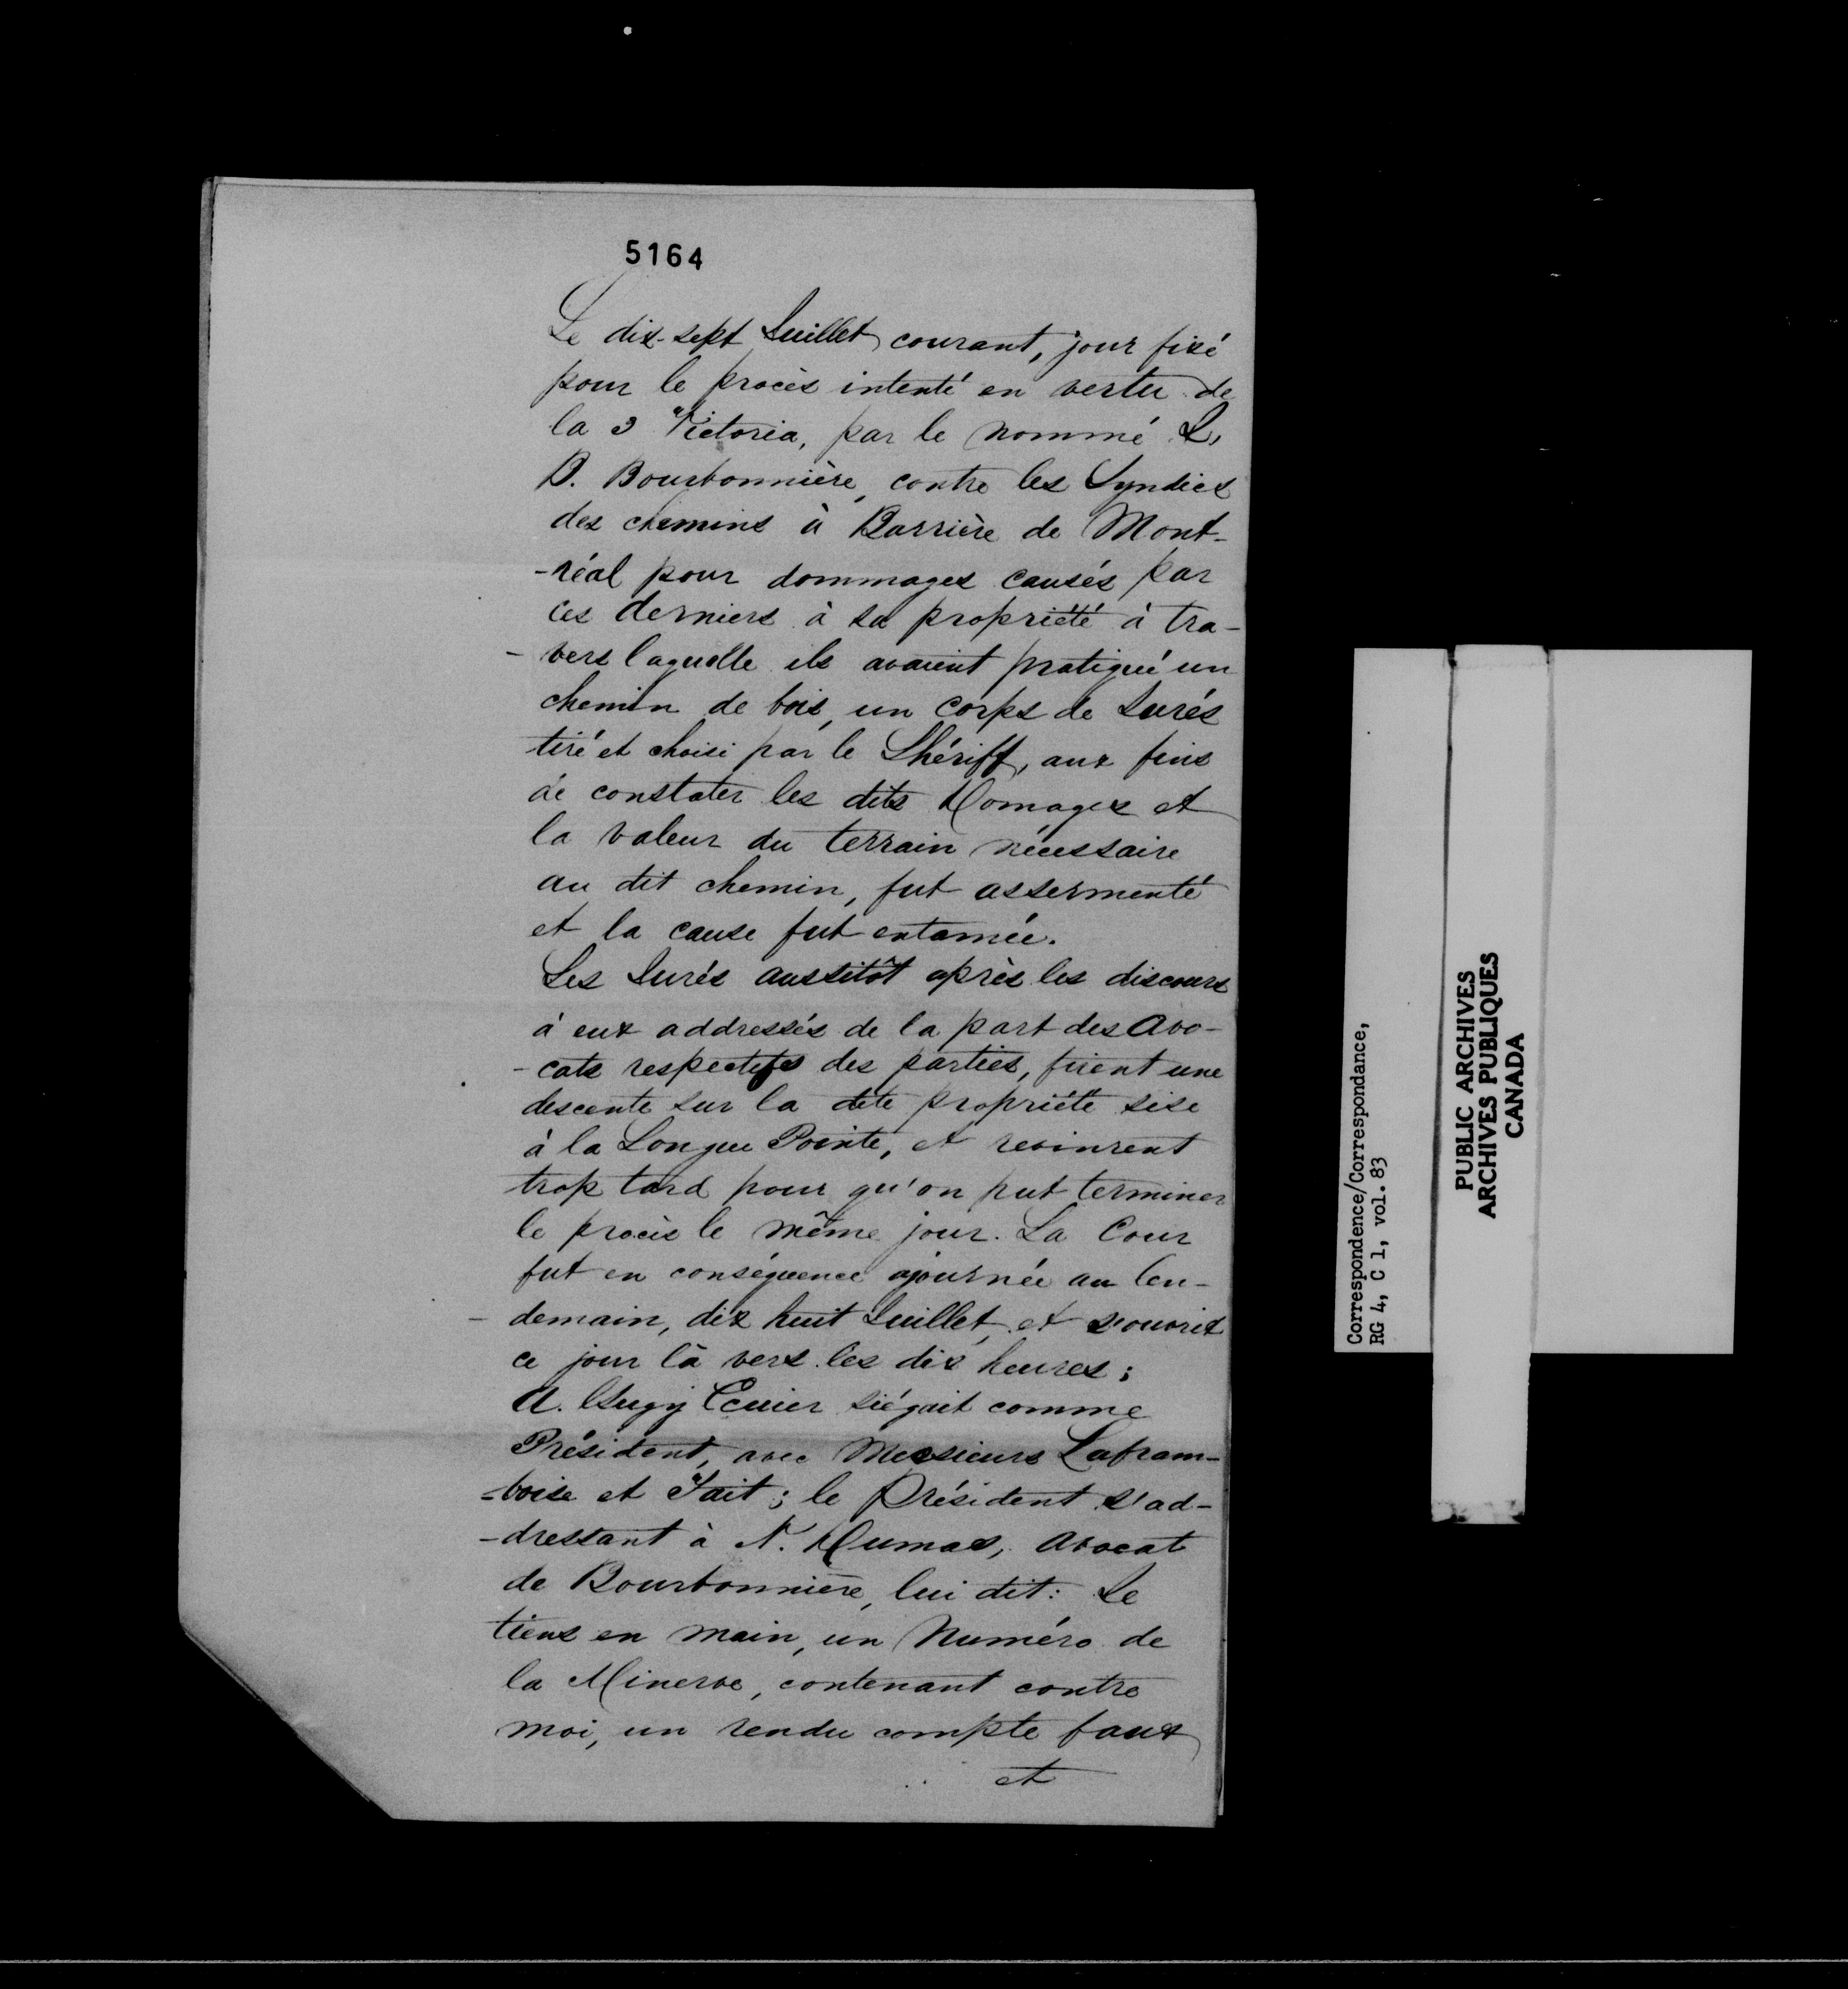 5164
Le dix-sept Juillet courant, jour fixé
pour le procès intenté en vertu de
la 3 Victoria, par le nommé L.
B. Bourbonnière, contre les Syndics
des chemins à Barrière de Mont-
-réal pour dommages causés par
ces derniers à sa propriété à tra-
-vers laquelle ils avaient pratiqué un
chemin de bois, un corps de Jurés
tiré et choisi par le Shériff, aux fins
de constater les dits Domages et
la valeur du terrain nécessaire
au dit chemin, fut assermenté
et la cause fut entamée.
Les Jurés aussitôt après les discours
à eux addressés de la part des Avo-
-cats respectifs des parties, firent une
descente sur la dite propriété sise
à la Longue Pointe, et revinrent
trop tard pour qu'on put terminer
le procès le même jour. La Cour
fut en conséquence ajournée au len-
-demain, dix huit Juillet, et s'ouvrit
ce jour là vers les dix heures;
A. Gugy Ecuier siégait comme
Président, avec Messieurs Lafram-
-boise et Tait; le Président s'ad-
-dressant à N. Dumas, Avocat
de Bourbonnière, lui dit: Je
tiens en main, un Numéro de
la Minerve, contenant contre
moi, un rendu compte faux
et
Correspondence/Correspondance,
RG 4, C 1, vol. 83
PUBLIC ARCHIVES
ARCHIVES PUBLIQUES
CANADA